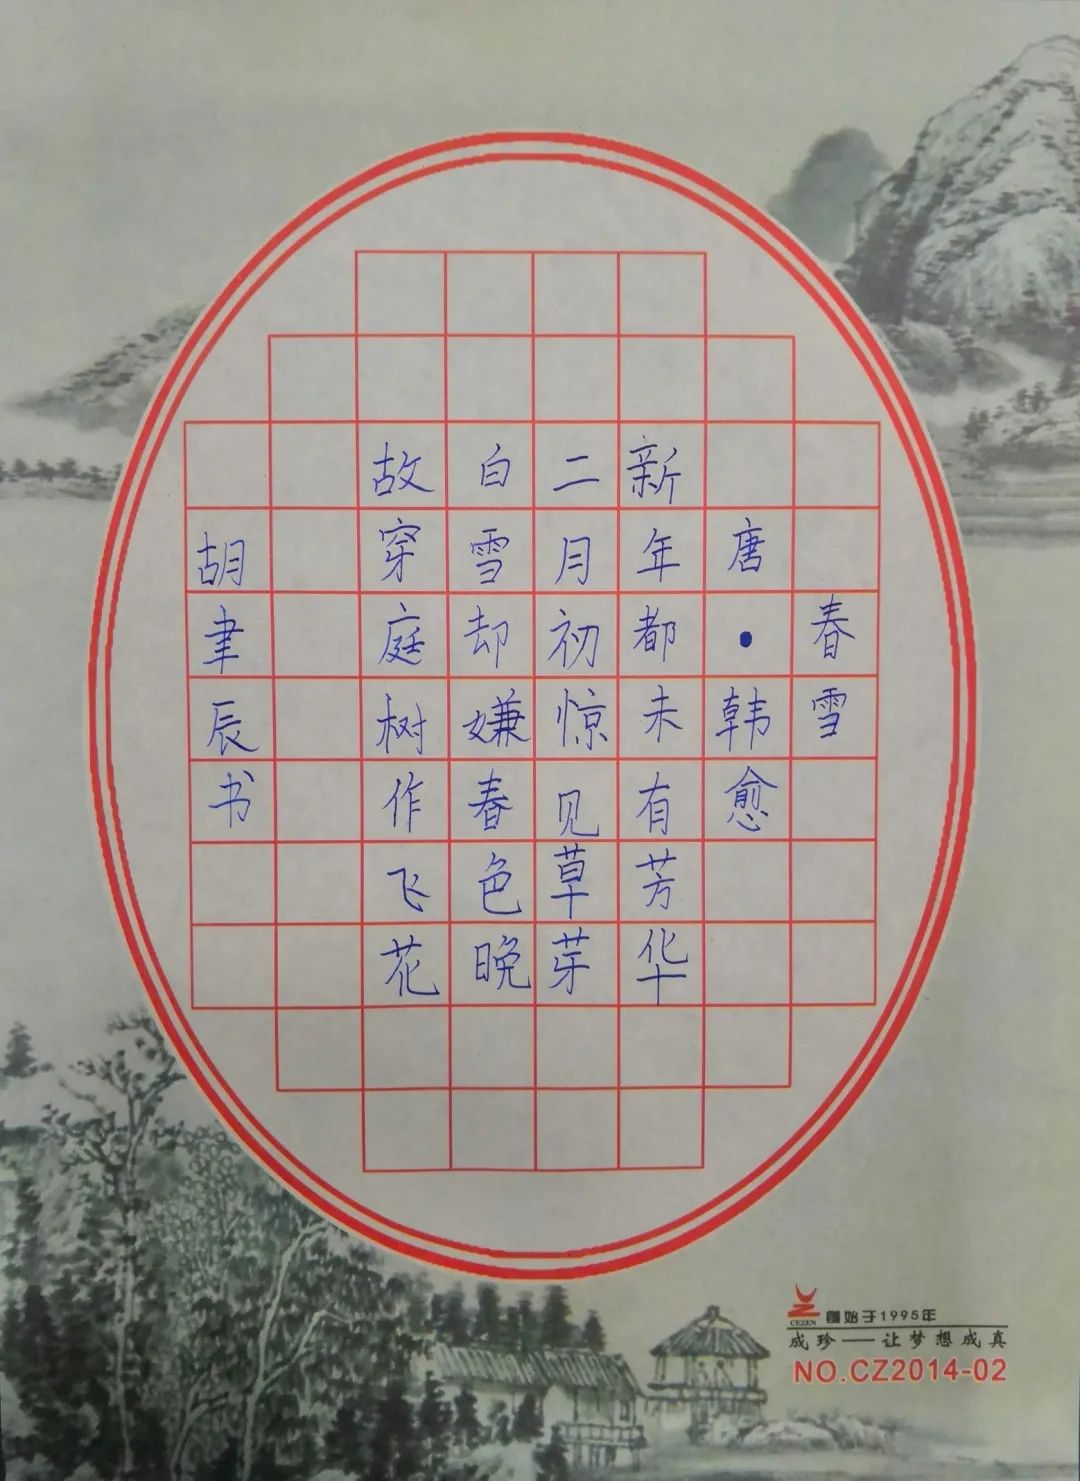 春雪
唐·韩愈
新年都未有芳华
二月初惊见草芽
白雪却嫌春色晚
故穿庭树作飞花
胡聿辰书
CEZEN
创始于1995年
成珍——让梦想成真
NO.CZ2014-02